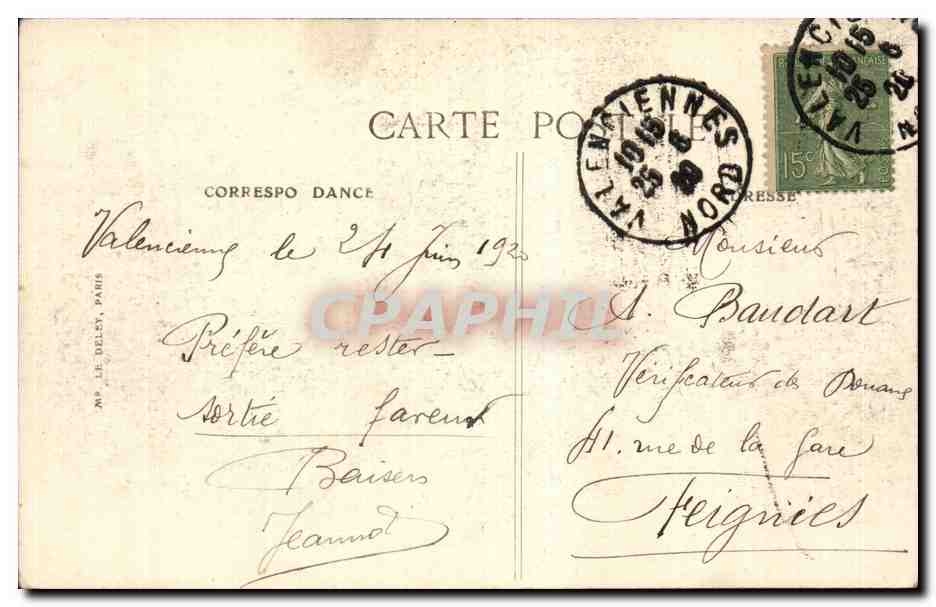 CARTE POSTALE
CORRESPO DANCE
ADRESSE
VALENCIENNES NORD
10 15
25 6
20
15c
VALENC
10 15
25 6
20
Valencienne le 24 Juin 1920
Préfère rester
sortie faveur
Baisers
Jeannot
Monsieur
A. Baudart
Vérificateur des Douanes
41. rue de la Gare
Feignies
Mp. LE DELEY, PARIS
CPAPHIL